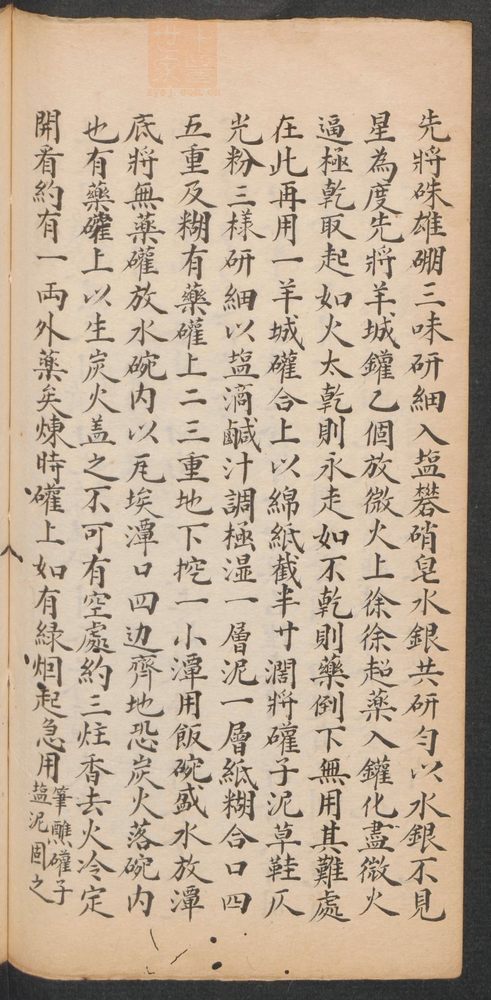 先將硃雄硼三味研細入盐礬硝皂水銀共研勻以水銀不見
星為度先將羊城鑵乙個放微火上徐徐起藥入鑵化盡微火
逼極乾取起如火太乾則永走如不乾則藥倒下無用其難處
在此再用一羊城礶合上以綿紙截半寸濶將礶子泥草鞋仄
光粉三樣研細以盐滴鹹汁調極湿一層泥一層紙糊合口四
五重及糊有藥礶上二三重地下挖一小潭用飯碗盛水放潭
底將無藥礶放水碗內以瓦埃潭口四边齊地恐炭火落碗內
也有藥礶上以生炭火盖之不可有空處約三炷香去火冷定
開看約有一兩外藥矣煉時礶上如有緑烟起急用筆醮礶子
盐泥固之